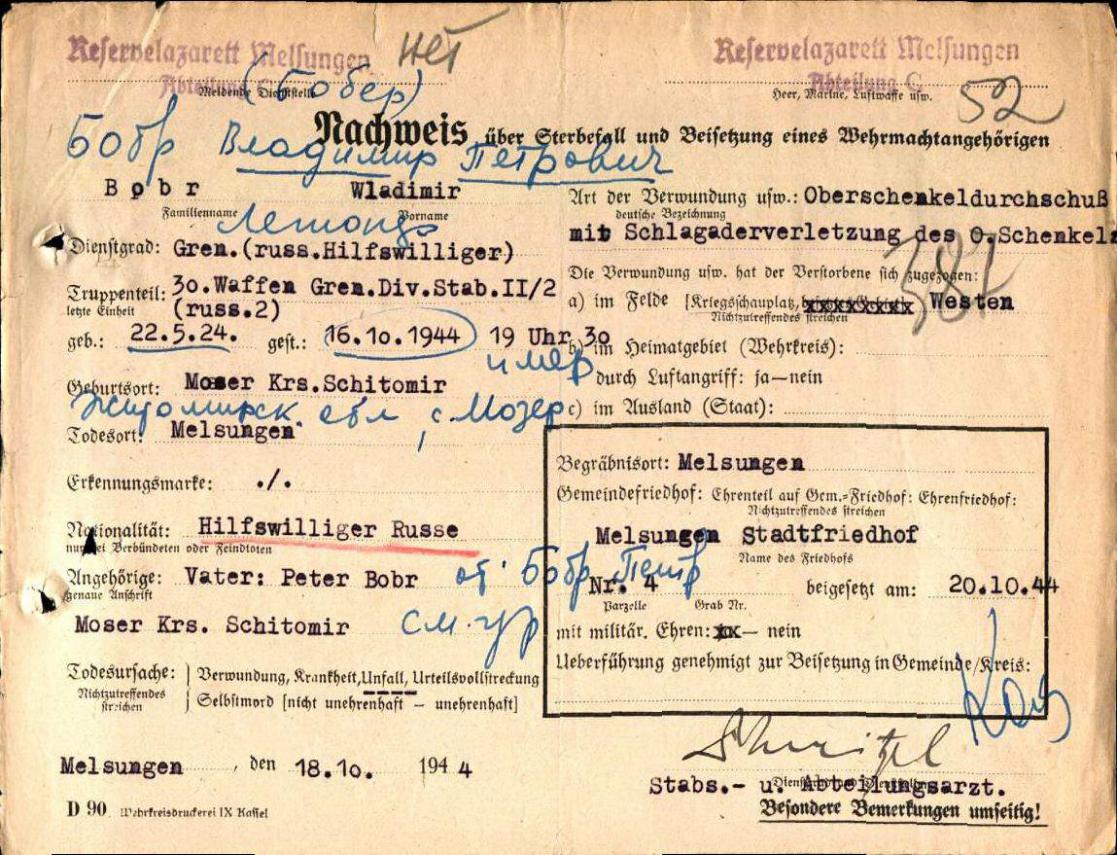 Reservelazarett Melsungen
Abteilung C
нет
Meldende Dienststelle
(Бобер)
Reservelazarett Melsungen
Abteilung C
Heer, Marine, Luftwaffe usw.
52
Nachweis über Sterbefall und Beisetzung eines Wehrmachtangehörigen
Бобр Владимир Петрович
Bobr Wladimir
Familienname Vorname
Dienstgrad: Gren.(russ.Hilfswilliger)
Truppenteil: 30.Waffen Gren.Div.Stab.II/2
letzte Einheit (russ.2)
geb.: 22.5.24. gest.: 16.10.1944 19 Uhr 30
умер
Geburtsort: Moser Krs.Schitomir
Житомирск обл, с. Мозер
Todesort: Melsungen
Erkennungsmarke: ./.
Nationalität: Hilfswilliger Russe
nur bei Verbündeten oder Feindtoten
Angehörige: Vater: Peter Bobr
genaue Anschrift
от. Бобр Петр
Moser Krs. Schitomir
Todesursache: Verwundung, Krankheit, Unfall, Urteilsvollstreckung
Nichtzutreffendes streichen
Selbstmord [nicht unehrenhaft – unehrenhaft]
Melsungen, den 18.10. 1944
D 90 Wehrkreisdruckerei IX Kassel
Art der Verwundung usw.: Oberschenkeldurchschuß
deutsche Bezeichnung
mit Schlagaderverletzung des O.Schenkels
Die Verwundung usw. hat der Verstorbene sich zugezogen:
a) im Felde [Kriegsschauplatz, Westen
Nichtzutreffendes streichen
b) im Heimatgebiet (Wehrkreis):
durch Luftangriff: ja—nein
c) im Ausland (Staat):
Begräbnisort: Melsungen
Gemeindefriedhof: Ehrenteil auf Gem.-Friedhof: Ehrenfriedhof:
Nichtzutreffendes streichen
Melsungen Stadtfriedhof
Name des Friedhofs
Nr. 4 beigesetzt am: 20.10.44
Parzelle Grab Nr.
mit militär. Ehren: xx — nein
Ueberführung genehmigt zur Beisetzung in Gemeinde/Kreis:
Stabs.- u. Abteilungsarzt.
Besondere Bemerkungen umseitig!